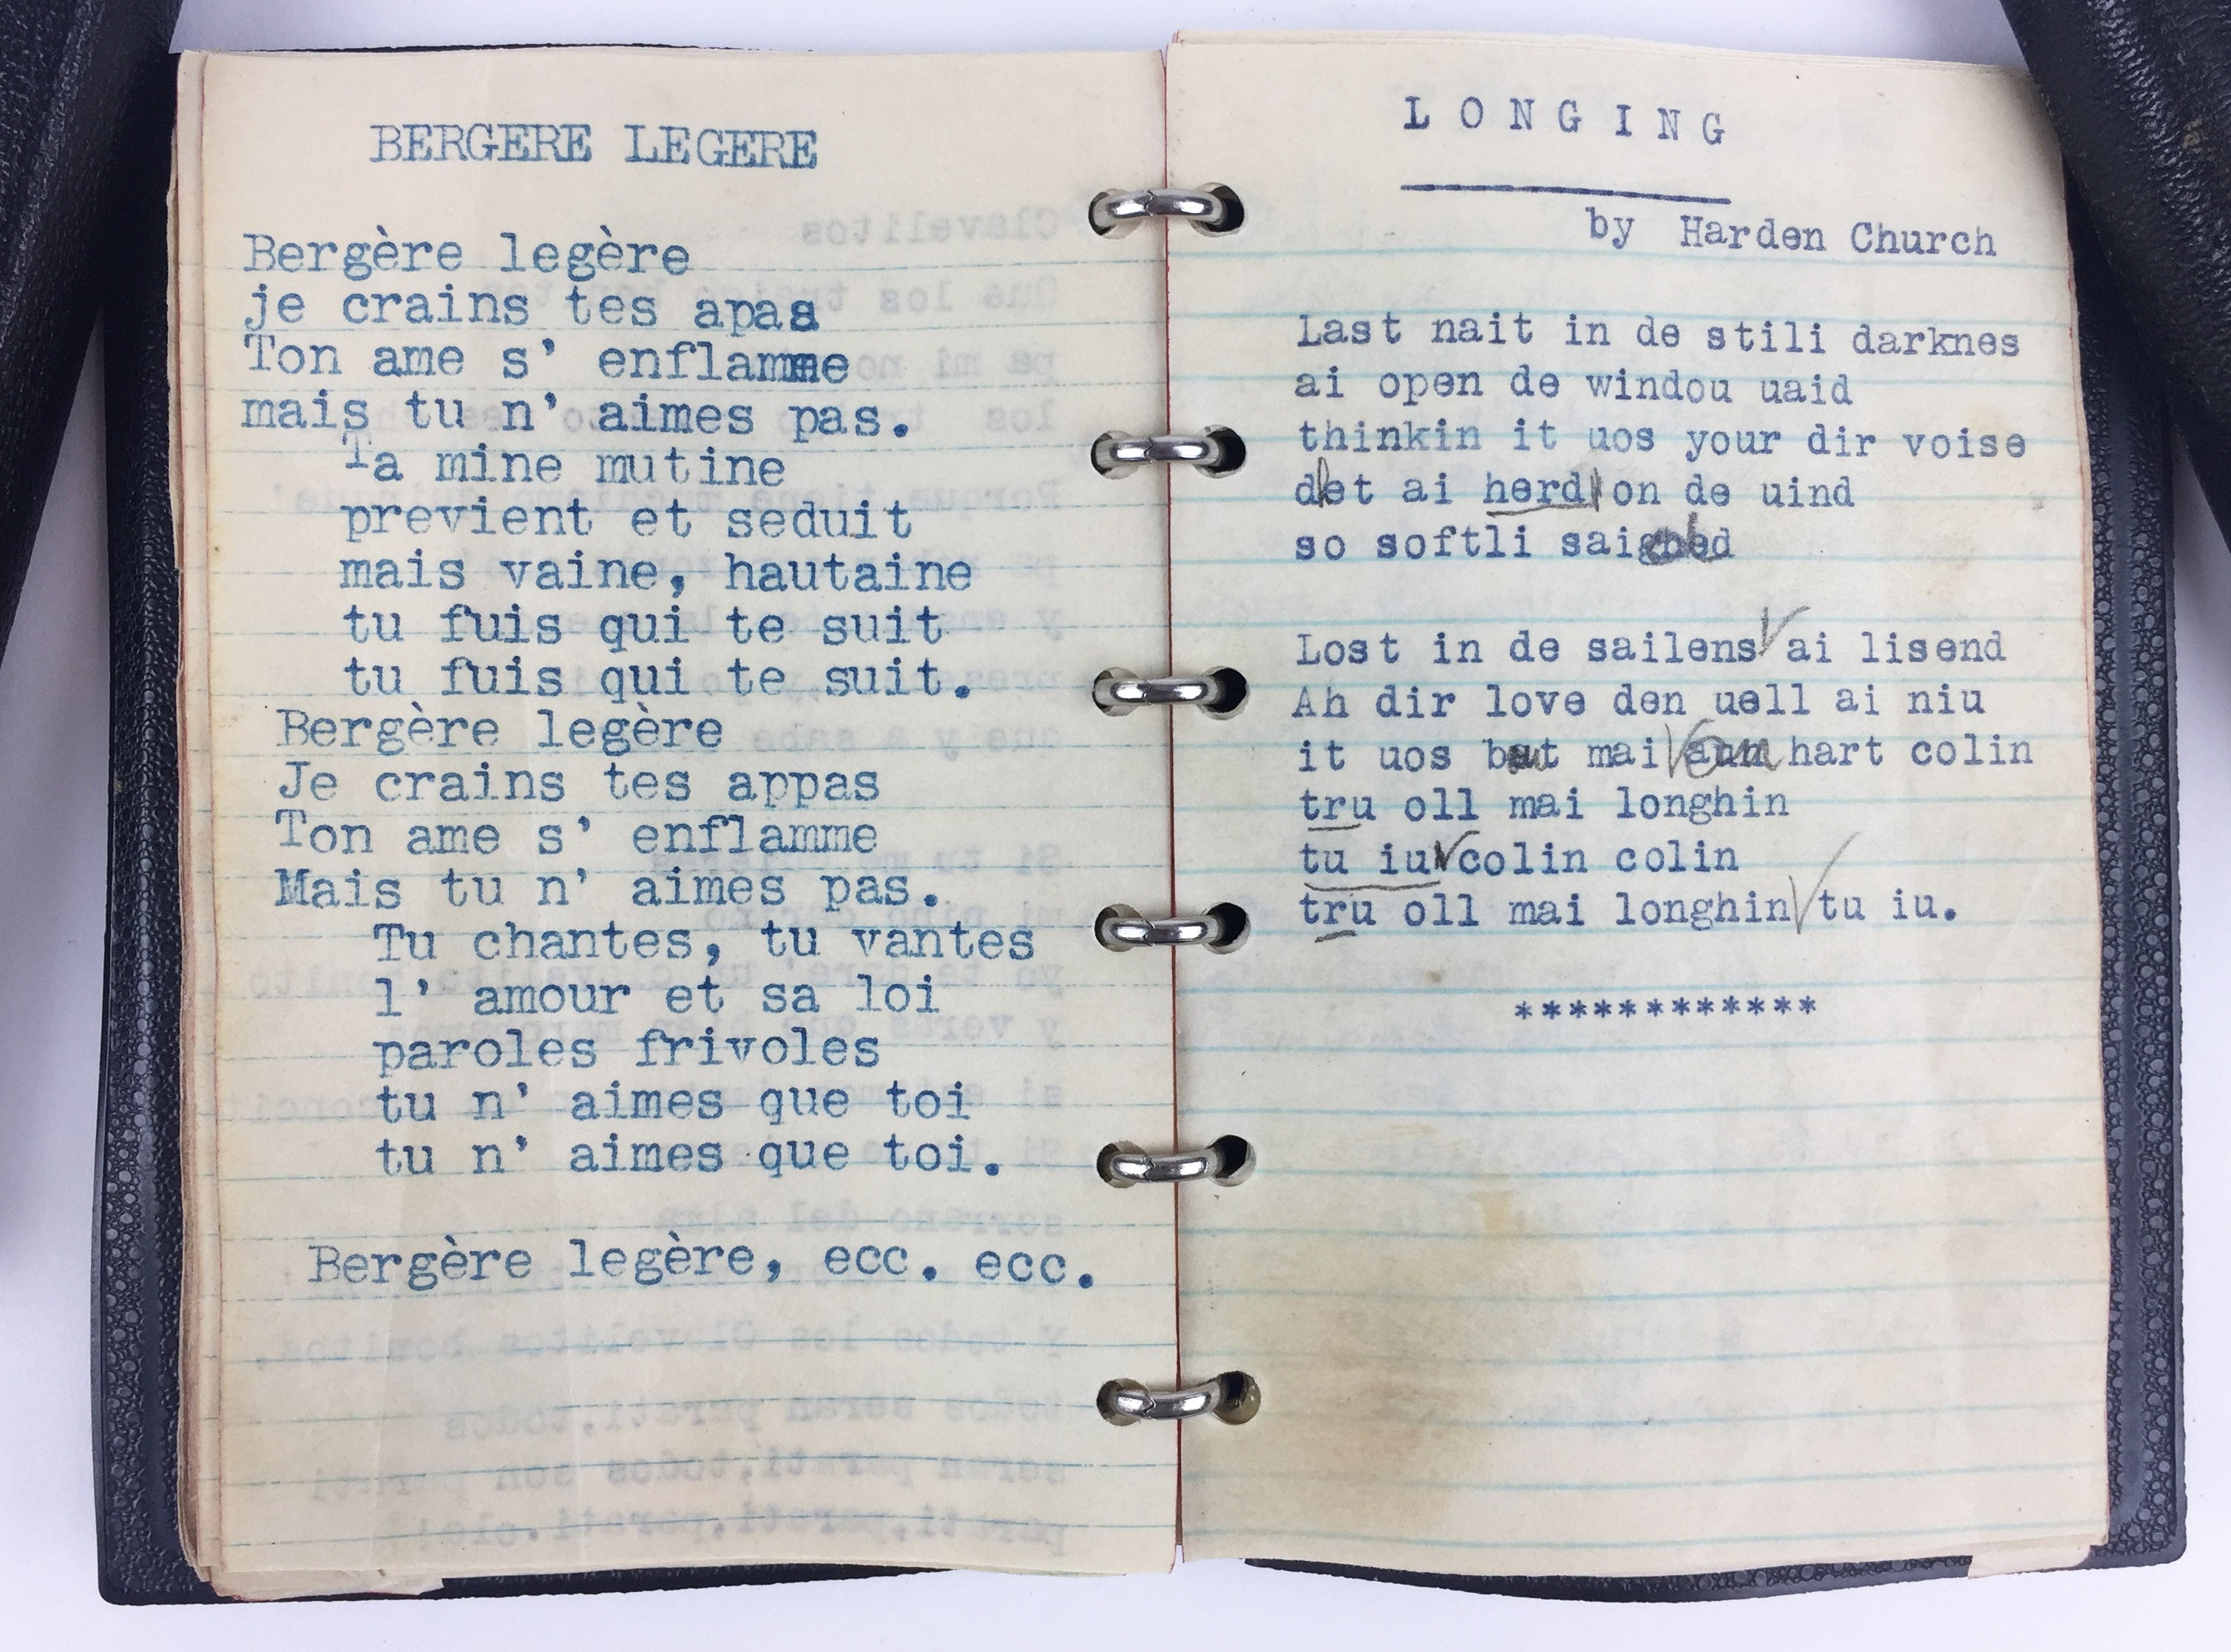 BERGERE LEGERE
Bergère legère
je crains tes apas
Ton ame s' enflamme
mais tu n' aimes pas.
Ta mine mutine
previent et seduit
mais vaine, hautaine
tu fuis qui te suit
tu fuis qui te suit.
Bergère legère
Je crains tes appas
Ton ame s' enflamme
Mais tu n' aimes pas.
Tu chantes, tu vantes
l' amour et sa loi
paroles frivoles
tu n' aimes que toi
tu n' aimes que toi.
Bergère legère, ecc. ecc.
LONGING
by Harden Church
Last nait in de stili darknes
ai open de windou uaid
thinkin it uos your dir voise
det ai herd on de uind
so softli
Lost in de sailens ai lisend
Ah dir love den uell ai niu
it uos but mai hart colin
tru oll mai longhin
tu iu colin colin
tru oll mai longhin tu iu.
************